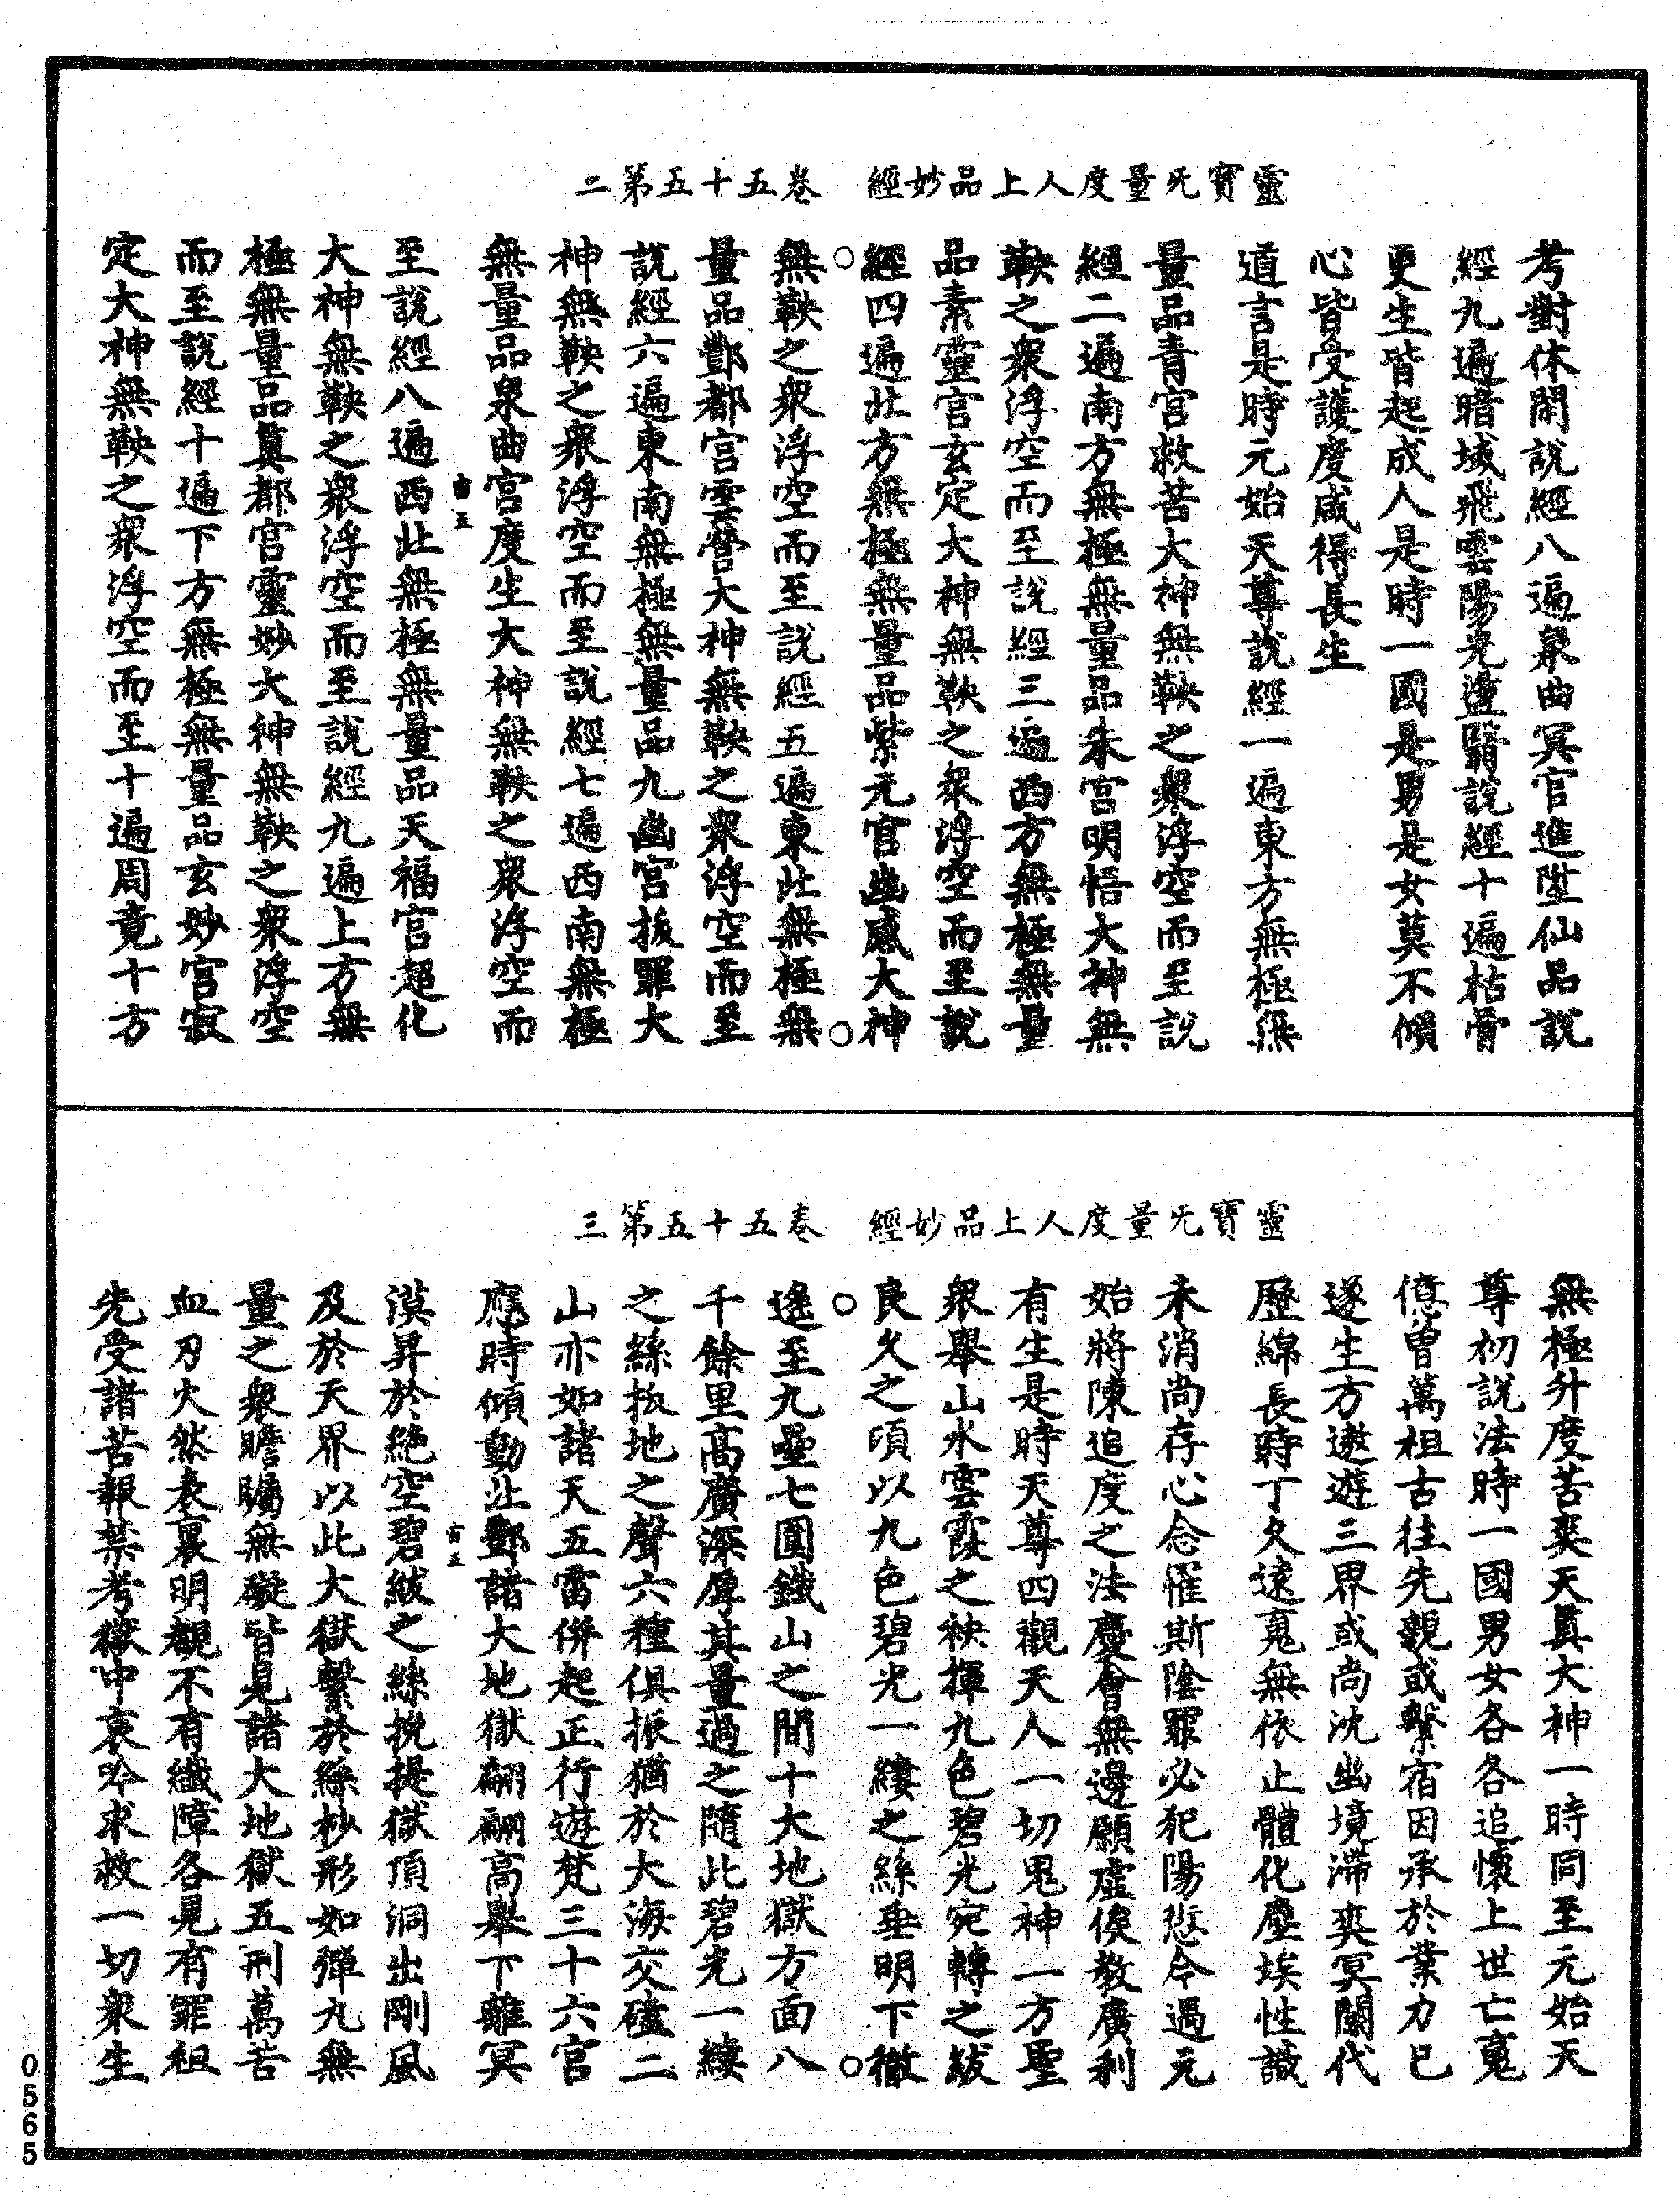 靈寶无量度人上品妙經　卷五十五第二
考對休閑說經八遍泉曲冥官進陞仙品說
經九遍暗域飛雲陽光盪翳說經十遍枯骨
更生皆起成人是時一國是男是女莫不傾
心皆受護度咸得長生
道言是時元始天尊說經一遍東方無極無
量品青宮救苦大神無鞅之眾浮空而至說
經二遍南方無極無量品朱宮明悟大神無
鞅之眾浮空而至說經三遍西方無極無量
品素靈宮玄定大神無鞅之眾浮空而至說
經四遍北方無極無量品紫元宮幽感大神
無鞅之眾浮空而至說經五遍東北無極無
量品酆都宮雲營大神無鞅之眾浮空而至
說經六遍東南無極無量品九幽宮拔罪大
神無鞅之眾浮空而至說經七遍西南無極
無量品泉曲宮度生大神無鞅之眾浮空而
宙五
至說經八遍西北無極無量品天福宮超化
大神無鞅之眾浮空而至說經九遍上方無
極無量品真都宮靈妙大神無鞅之眾浮空
而至說經十遍下方無極無量品玄妙宮寂
定大神無鞅之眾浮空而至十遍周竟十方
靈寶无量度人上品妙經　卷五十五第三
無極升度苦爽天真大神一時同至元始天
尊初說法時一國男女各各追懷上世亡冤
億曾萬祖古往先親或繫宿因承於業力已
遂生方遨遊三界或尚沈幽境滯爽冥關代
歷綿長時丁久遠冤無依止體化塵埃性識
未消尚存心念罹斯陰罪必犯陽愆今遇元
始將陳追度之法慶會無邊願虛俟教廣利
有生是時天尊四觀天人一切鬼神一方聖
眾舉山水雲霞之袂揮九色碧光宛轉之紱
良久之頃以九色碧光一縷之絲垂明下徹
遙至九壘七圍鐵山之間十大地獄方面八
千餘里高廣深厚其量過之隨此碧光一縷
之絲拔地之聲六種俱振猶於大海交磕二
山亦如諸天五雷併起正行遊梵三十六官
應時傾動北酆諸大地獄翩翩高舉下離冥
宙五
漠昇於絕空碧紱之絲挽提獄頂洞出剛風
及於天界以此大獄繫於絲杪形如彈丸無
量之眾瞻矚無礙皆見諸大地獄五刑萬苦
血刃火然表裏明覩不有纖障各見有罪祖
先受諸苦報禁考獄中哀吟求救一切眾生
0565